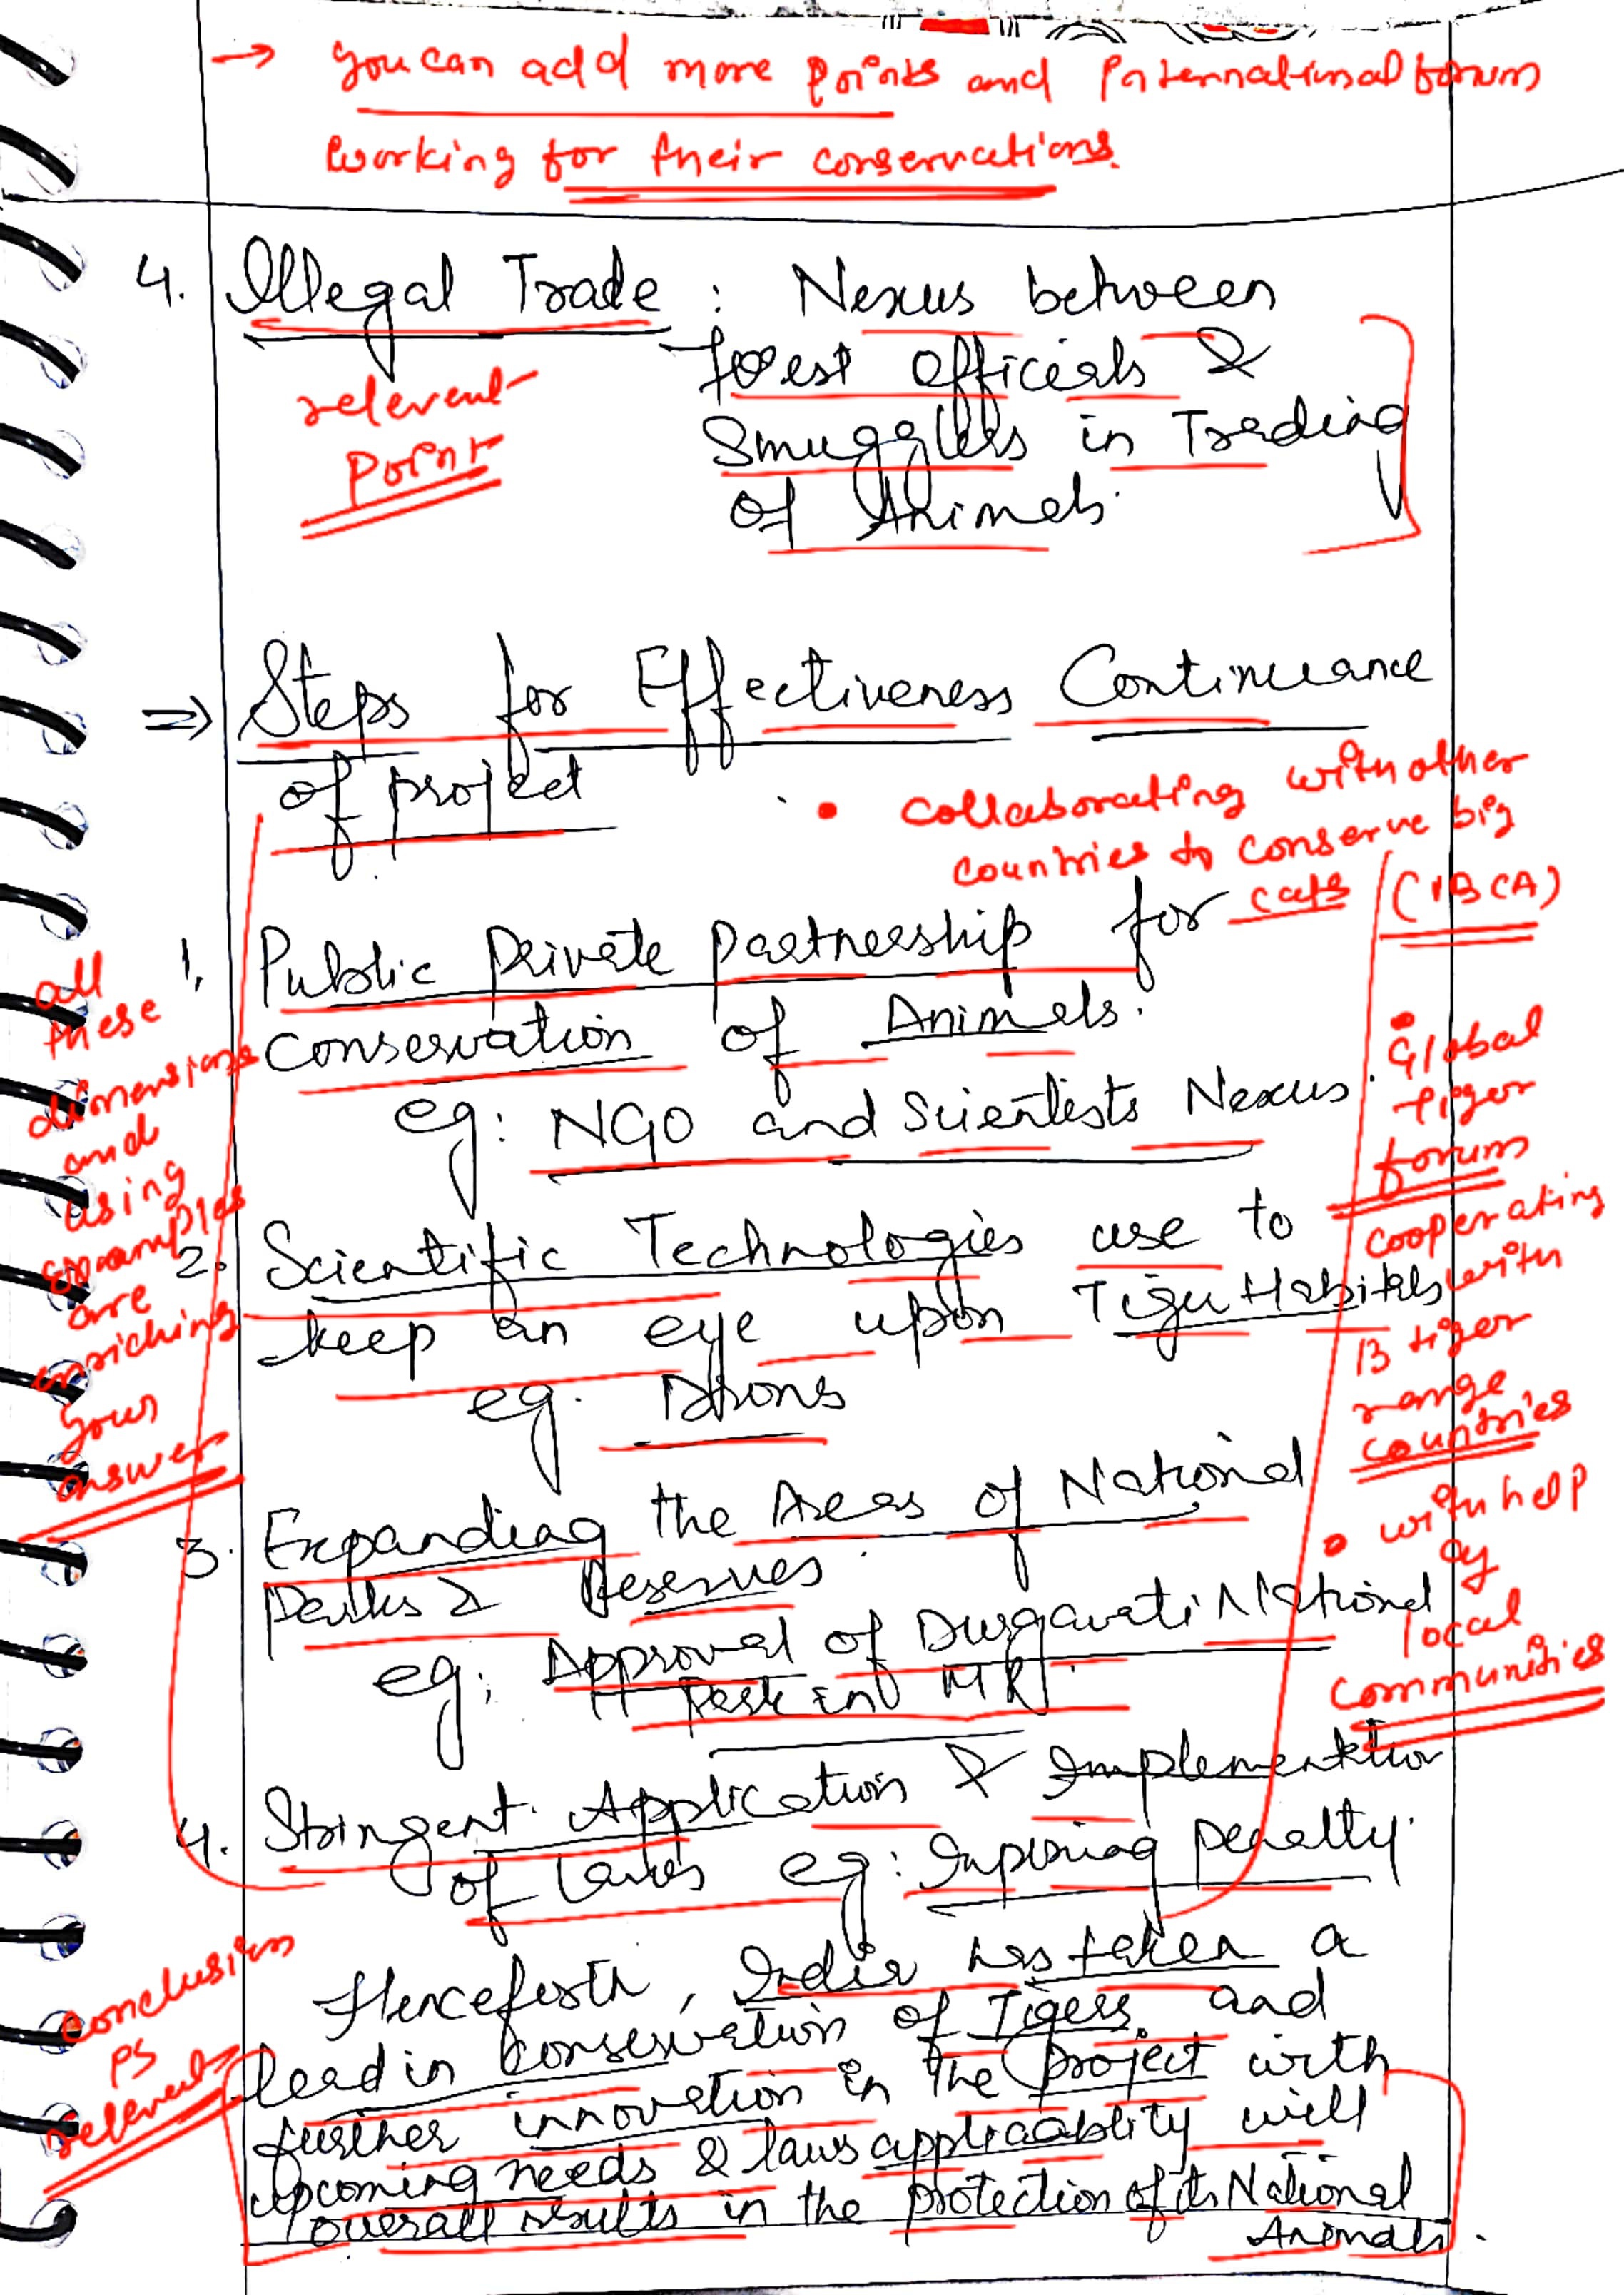 → you can add more points and International forum
working for their conservations.
4. Illegal Trade : Nexus between
forest officials &
Smugglers in Trading
of Animals.
relevent
point
⇒ Steps for Effectiveness Continuance
of project
• collaborating with other
countries to conserve big
cats (IBCA)
1. Public Private Partnership for
conservation of Animals.
eg: NGO and Scientists Nexus.
all
these
dimensions
and
using
examples
are
enriching
your
answer
• Global
tiger
forum
cooperating
with
13 tiger
range
countries
• with help
of
local
communities
2. Scientific Technologies use to
keep an eye upon Tiger Habitats
eg. Drons
3. Expanding the Areas of National
Parks & Reserves.
eg: Approval of Durgavati National
Park in MP.
4. Stringent Application & Implementation
of Laws eg: Imposing penalty.
Henceforth, India has taken a
lead in conservation of Tigers and
further innovation in the project with
upcoming needs & laws applicablity will
overall results in the protection of its National
Animals.
conclusion
is
relevent